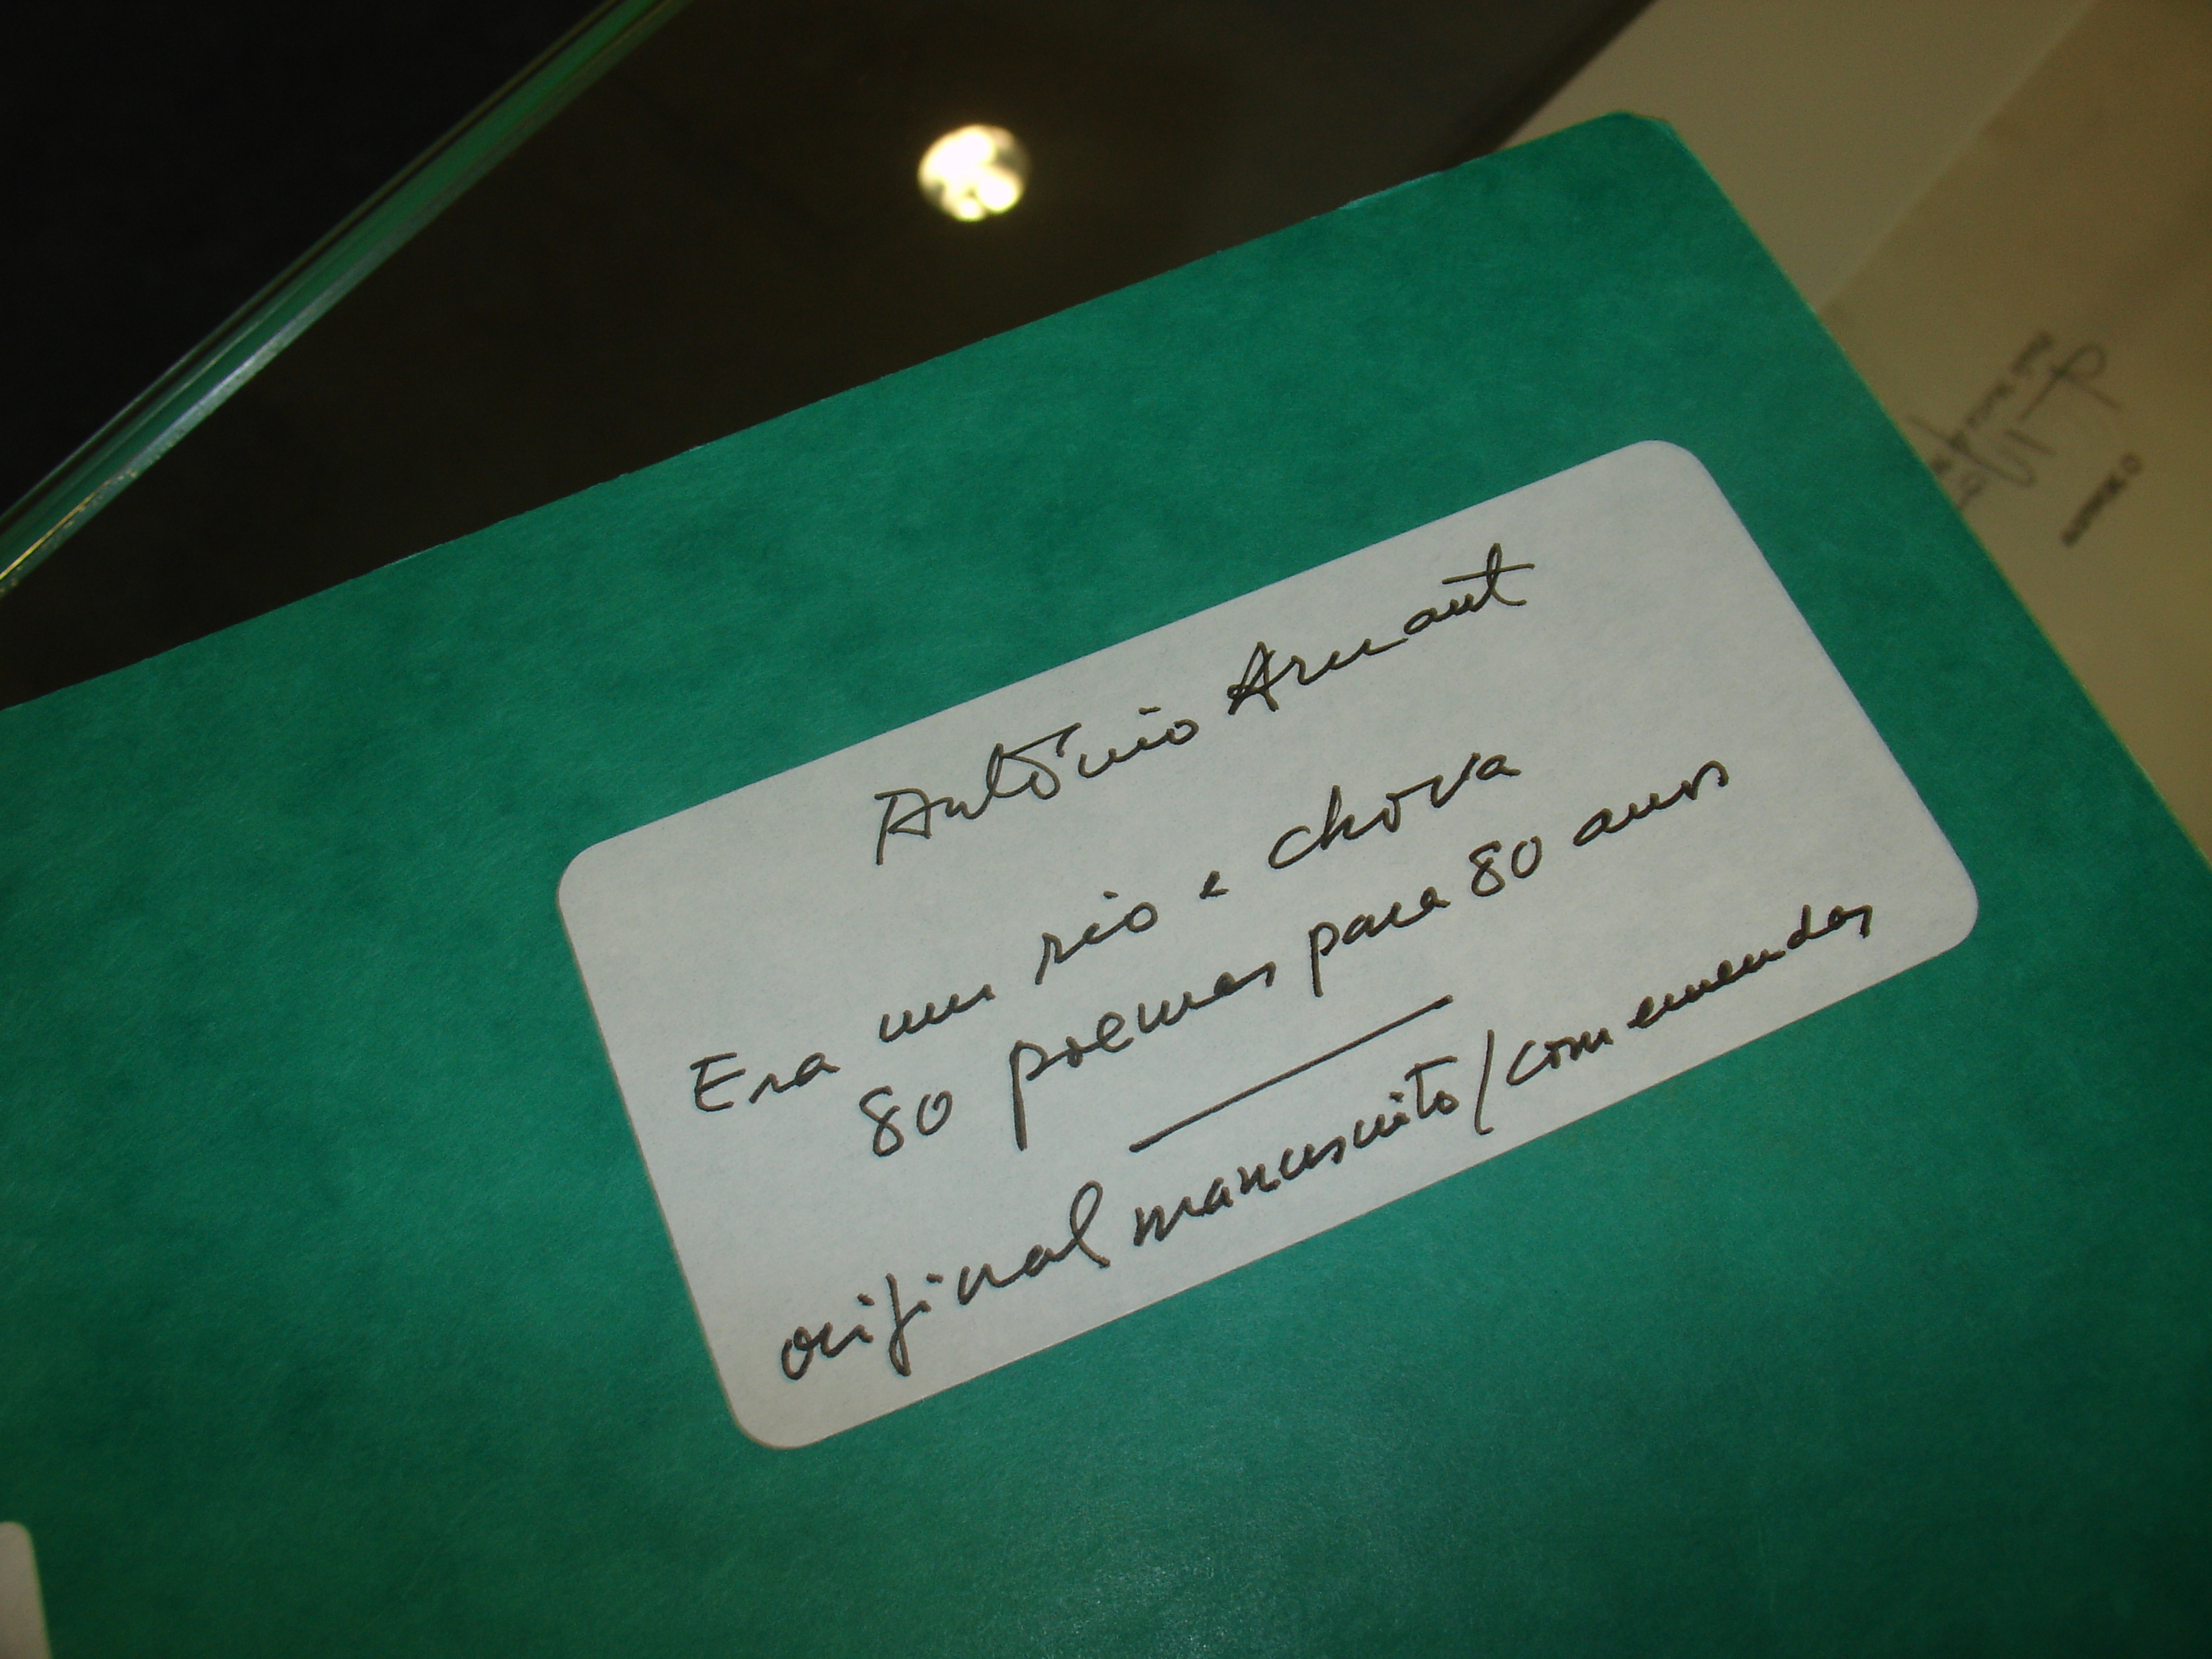 António Arnaut
Era um rio e chova
80 poemas para 80 anos
original manuscrito/com emendas